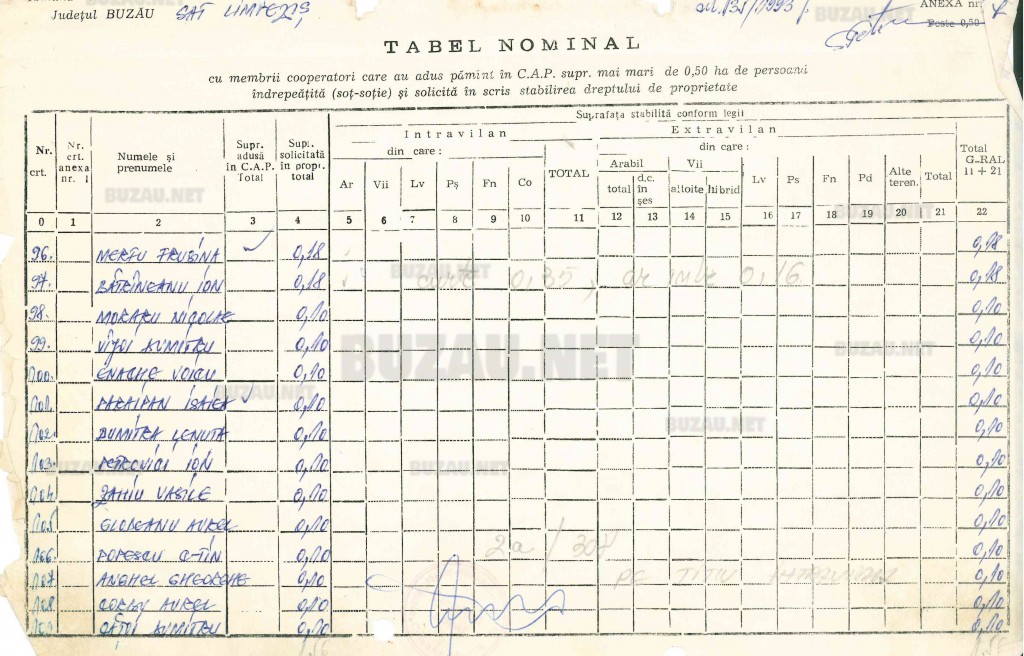 Județul BUZĂU SAT LIMPEZIȘ
ANEXA nr.
Peste 0,50
TABEL NOMINAL
cu membrii cooperatori care au adus pămînt în C.A.P. supr. mai mari de 0,50 ha de persoană
îndrepețită (soț-soție) și solicită în scris stabilirea dreptului de proprietate
Nr. crt.
Nr. crt. anexa nr. 1
Numele și prenumele
Supr. adusă în C.A.P. Total
Supr. solicitată în propr. total
Suprafața stabilită conform legii
Intravilan
din care :
Ar Vii Lv Pș Fn Co TOTAL
Extravilan
din care :
Arabil
total
d.c. în șes
Vii
altoite hibrid
Lv Ps Fn Pd Alte teren. Total
Total G-RAL 11 + 21
0 1 2 3 4 5 6 7 8 9 10 11 12 13 14 15 16 17 18 19 20 21 22
96. MERFU FRUSINA 0,18 0,18
97. BĂTRÎNEANU ION 0,18 curte 0,35, ar intr 0,16 0,18
98. MORARU NICOLAE 0,10 0,10
99. VIJOI DUMITRU 0,10 0,10
100. ENACHE VOICU 0,10 0,10
101. PARAIPAN ISAIEA 0,10 0,10
102. DUMITRA LENUTA 0,10 0,10
103. PETROVICI ION 0,10 0,10
104. ZAHIU VASILE 0,10 0,10
105. GLODEANU AUREL 0,10 0,10
106. POPESCU C-TIN 0,10 2a / 307 0,10
107. ANGHEL GHEORGHE 0,10 PE TITLU INTRAVILAN 0,10
108. AUREL 0,10 0,10
109. CĂȚOI DUMITRU 0,10 0,10
BUZAU.NET
BUZAU.NET
BUZAU.NET
BUZAU.NET
BUZAU.NET
BUZAU.NET
BUZAU.NET
BUZAU.NET
BUZAU.NET
BUZAU.NET